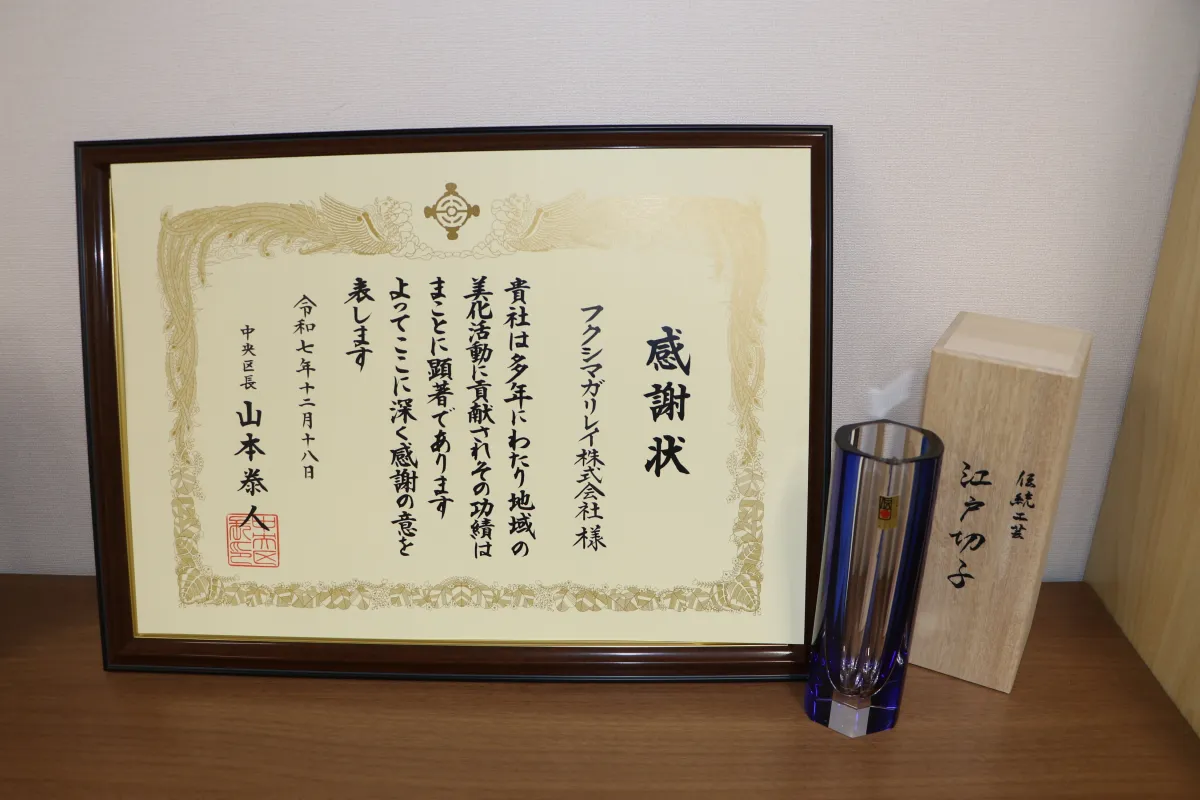 感謝状
フクシマガリレイ株式会社 様
貴社は多年にわたり地域の
美化活動に貢献されその功績は
まことに顕著であります
よってここに深く感謝の意を
表します
令和七年十二月十八日
中央区長 山本泰人
伝統工芸
江戸切子